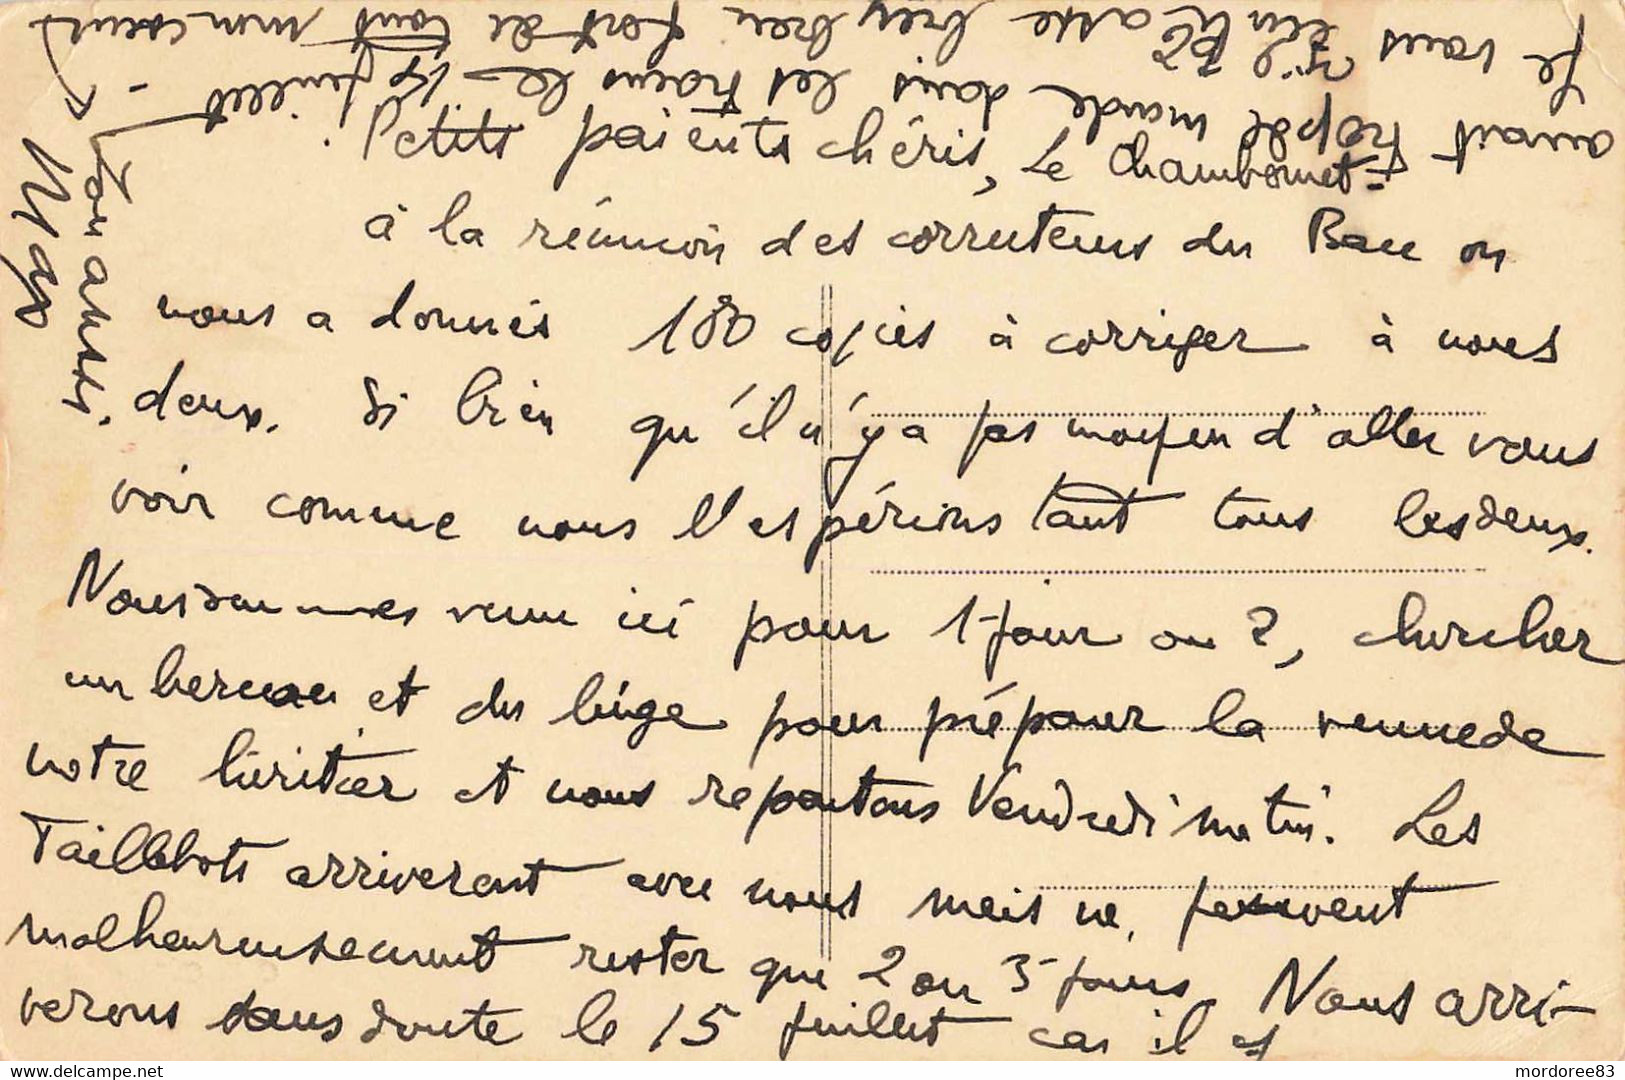 Petits parents chéris, Le Chambonnet-
à la réunion des correcteurs du Bac on
nous a donnés 180 copies à corriger à nous
deux. Si bien qu'il n'y a pas moyen d'aller vous
voir comme nous l'espérions tant tous les deux.
Nous sommes venu ici pour 1 jour ou 2, chercher
un berceau et du linge pour préparer la venue de
notre héritier et nous repartons Vendredi matin. Les
Taillebots arriveront avec nous mais ne peuvent
malheureusement rester que 2 ou 3 jours. Nous arri-
verons sans doute le 15 juillet car il
aurait trop de monde dans les trains le 14 juillet -
Je vous embrasse bien bien fort de tout mon coeur
Ton aussi.
Mag
mordoree83